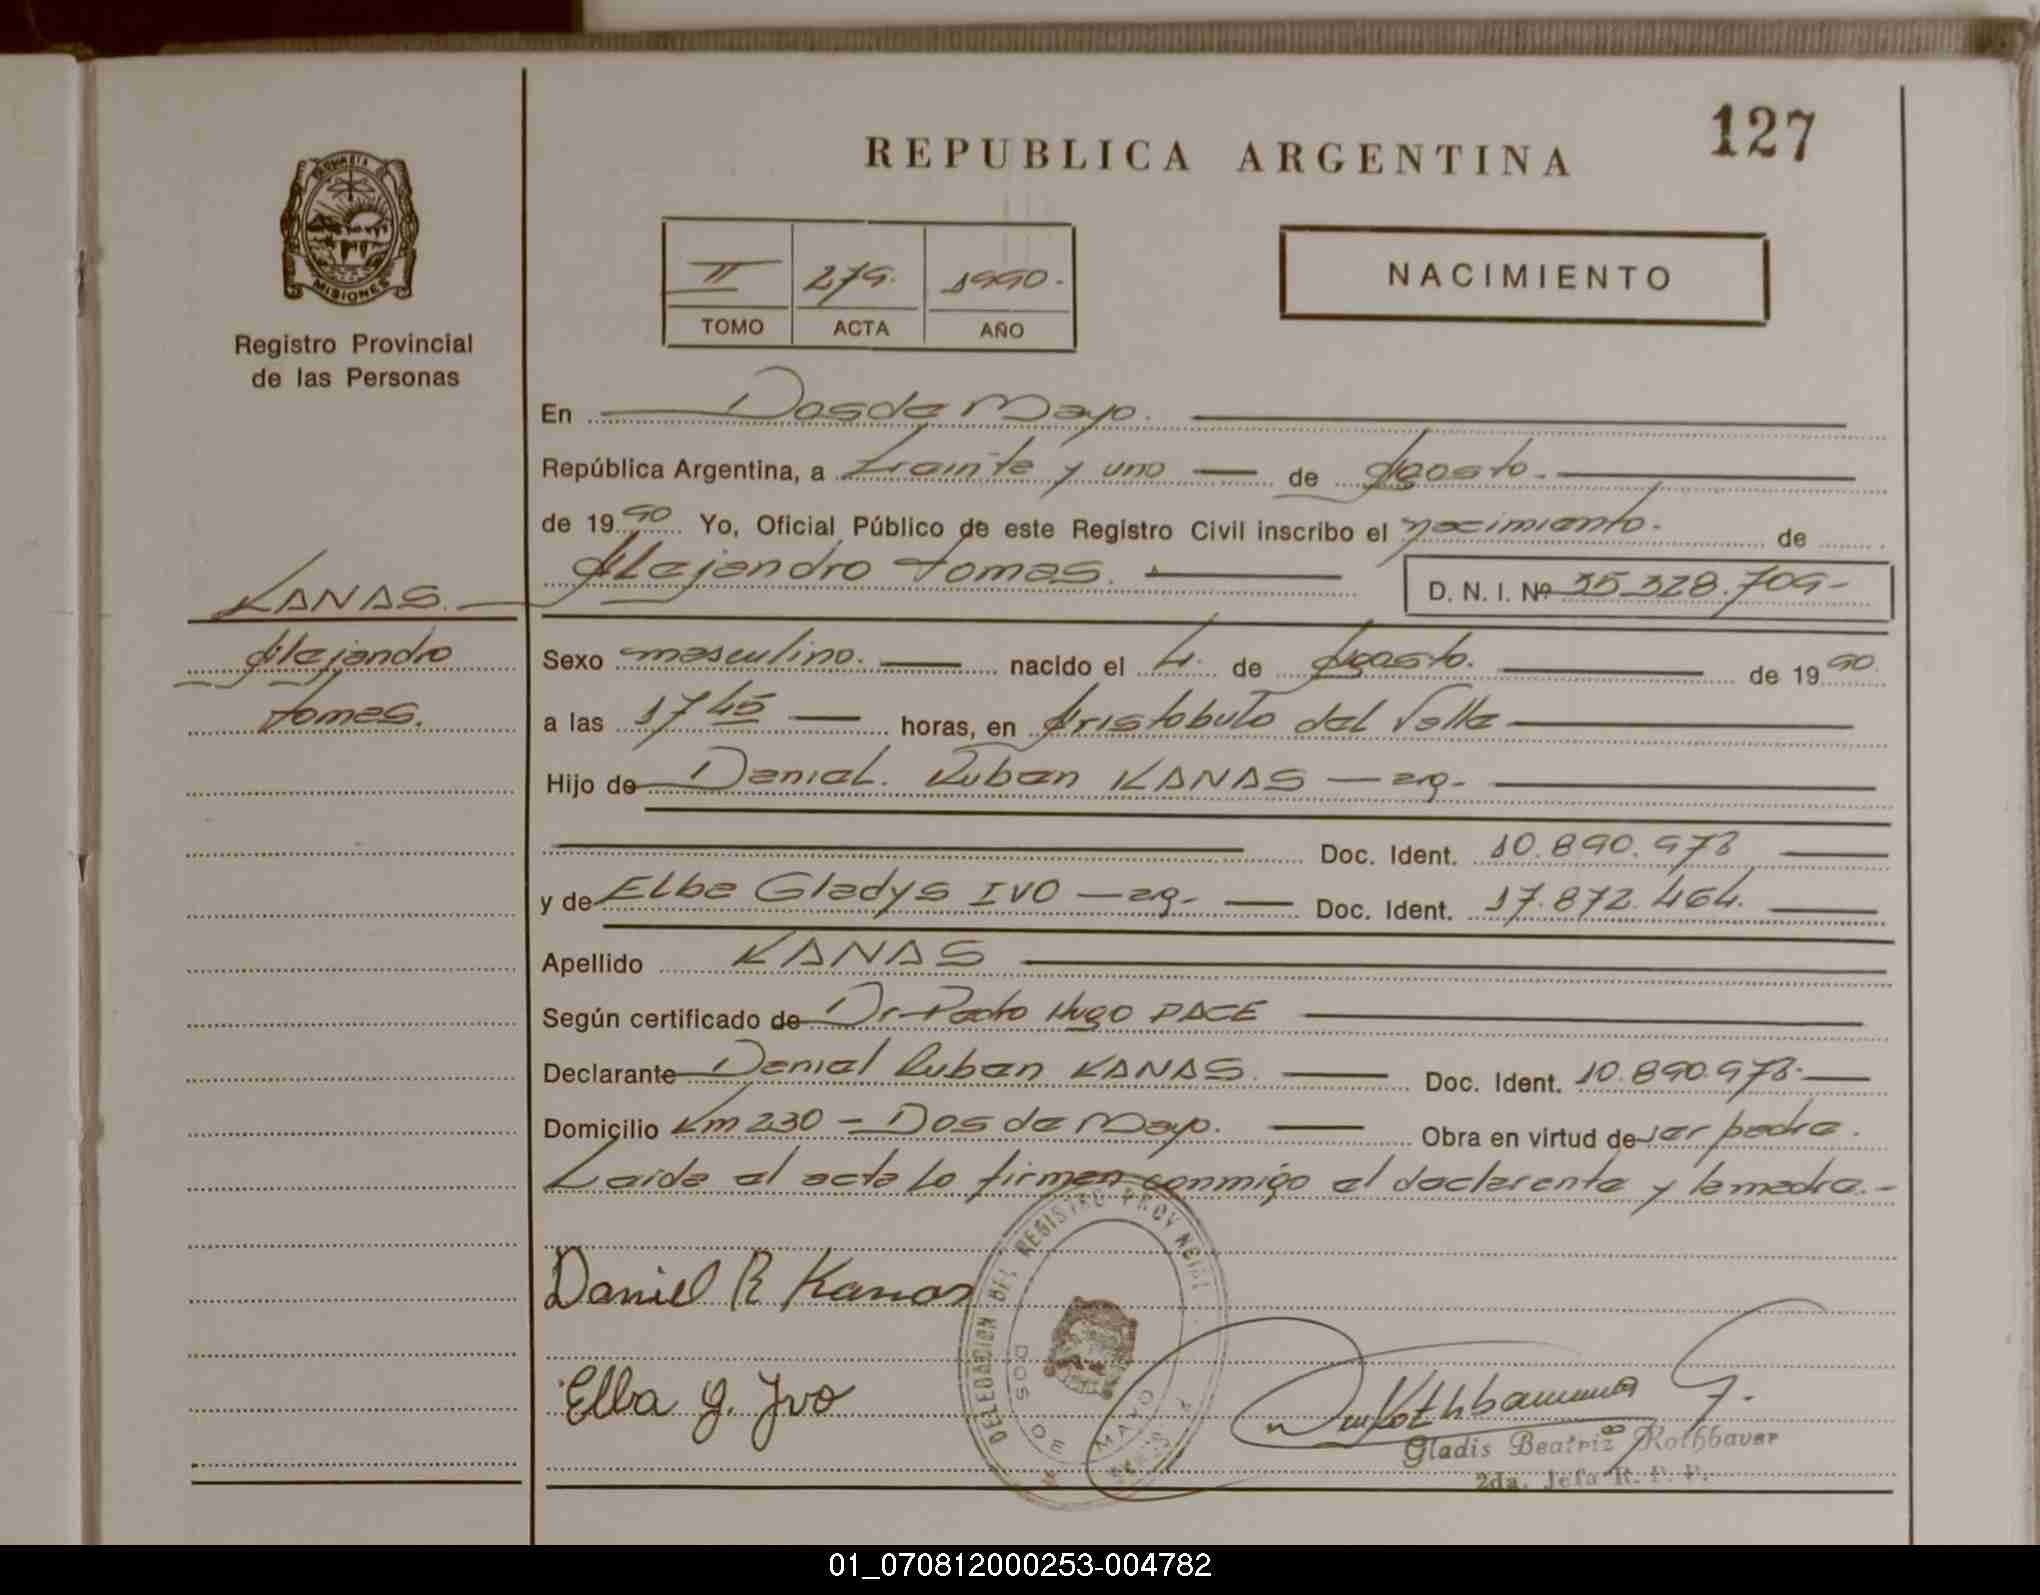 127
REPUBLICA ARGENTINA
MISIONES
Registro Provincial
de las Personas
II 279. 1990.-
TOMO ACTA AÑO
NACIMIENTO
En Dos de Mayo.
República Argentina, a treinta y uno de Agosto.-
de 1990 Yo, Oficial Público de este Registro Civil inscribo el nacimiento. de
Alejandro Tomas. D. N. I. Nº 35.328.709-
KANAS.
Alejandro
Tomas.
Sexo masculino. nacido el 4. de Agosto. de 1990.
a las 17 45 horas, en Aristobulo del Valle
Hijo de Daniel. Ruben KANAS — arg.-
Doc. Ident. 10.890.978
y de Elba Gladys IVO — arg.- Doc. Ident. 17.872.464.
Apellido KANAS
Según certificado de Dr. Pedro Hugo PACE
Declarante Daniel Ruben KANAS. Doc. Ident. 10.890.978.
Domicilio Km 230 - Dos de Mayo. Obra en virtud de ser padre.
Leida el acta lo firman conmigo el declarante y la madre.-
DELEGACION DEL REGISTRO PROVINCIAL
DOS DE MAYO
Daniel R Kanas
Elba G. Ivo
Gladis Beatriz Rothbauer
2da. Jefa R. P. P.
01_070812000253-004782